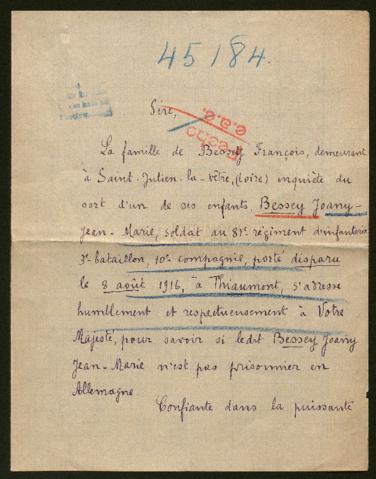 45184.
Sire,
La famille de Bessey François, demeurant
à Saint-Julien-la-Vêtre, (Loire) inquiète du
sort d'un de ses enfants Bessey Joany-
Jean-Marie, soldat au 81e régiment d'infanterie
3e bataillon, 10e compagnie, porté disparu
le 8 août 1916, à Thiaumont, s'adresse
humblement et respectueusement à Votre
Majesté, pour savoir si ledit Bessey Joany
Jean-Marie n'est pas prisonnier en
Allemagne
Confiante dans la puissante